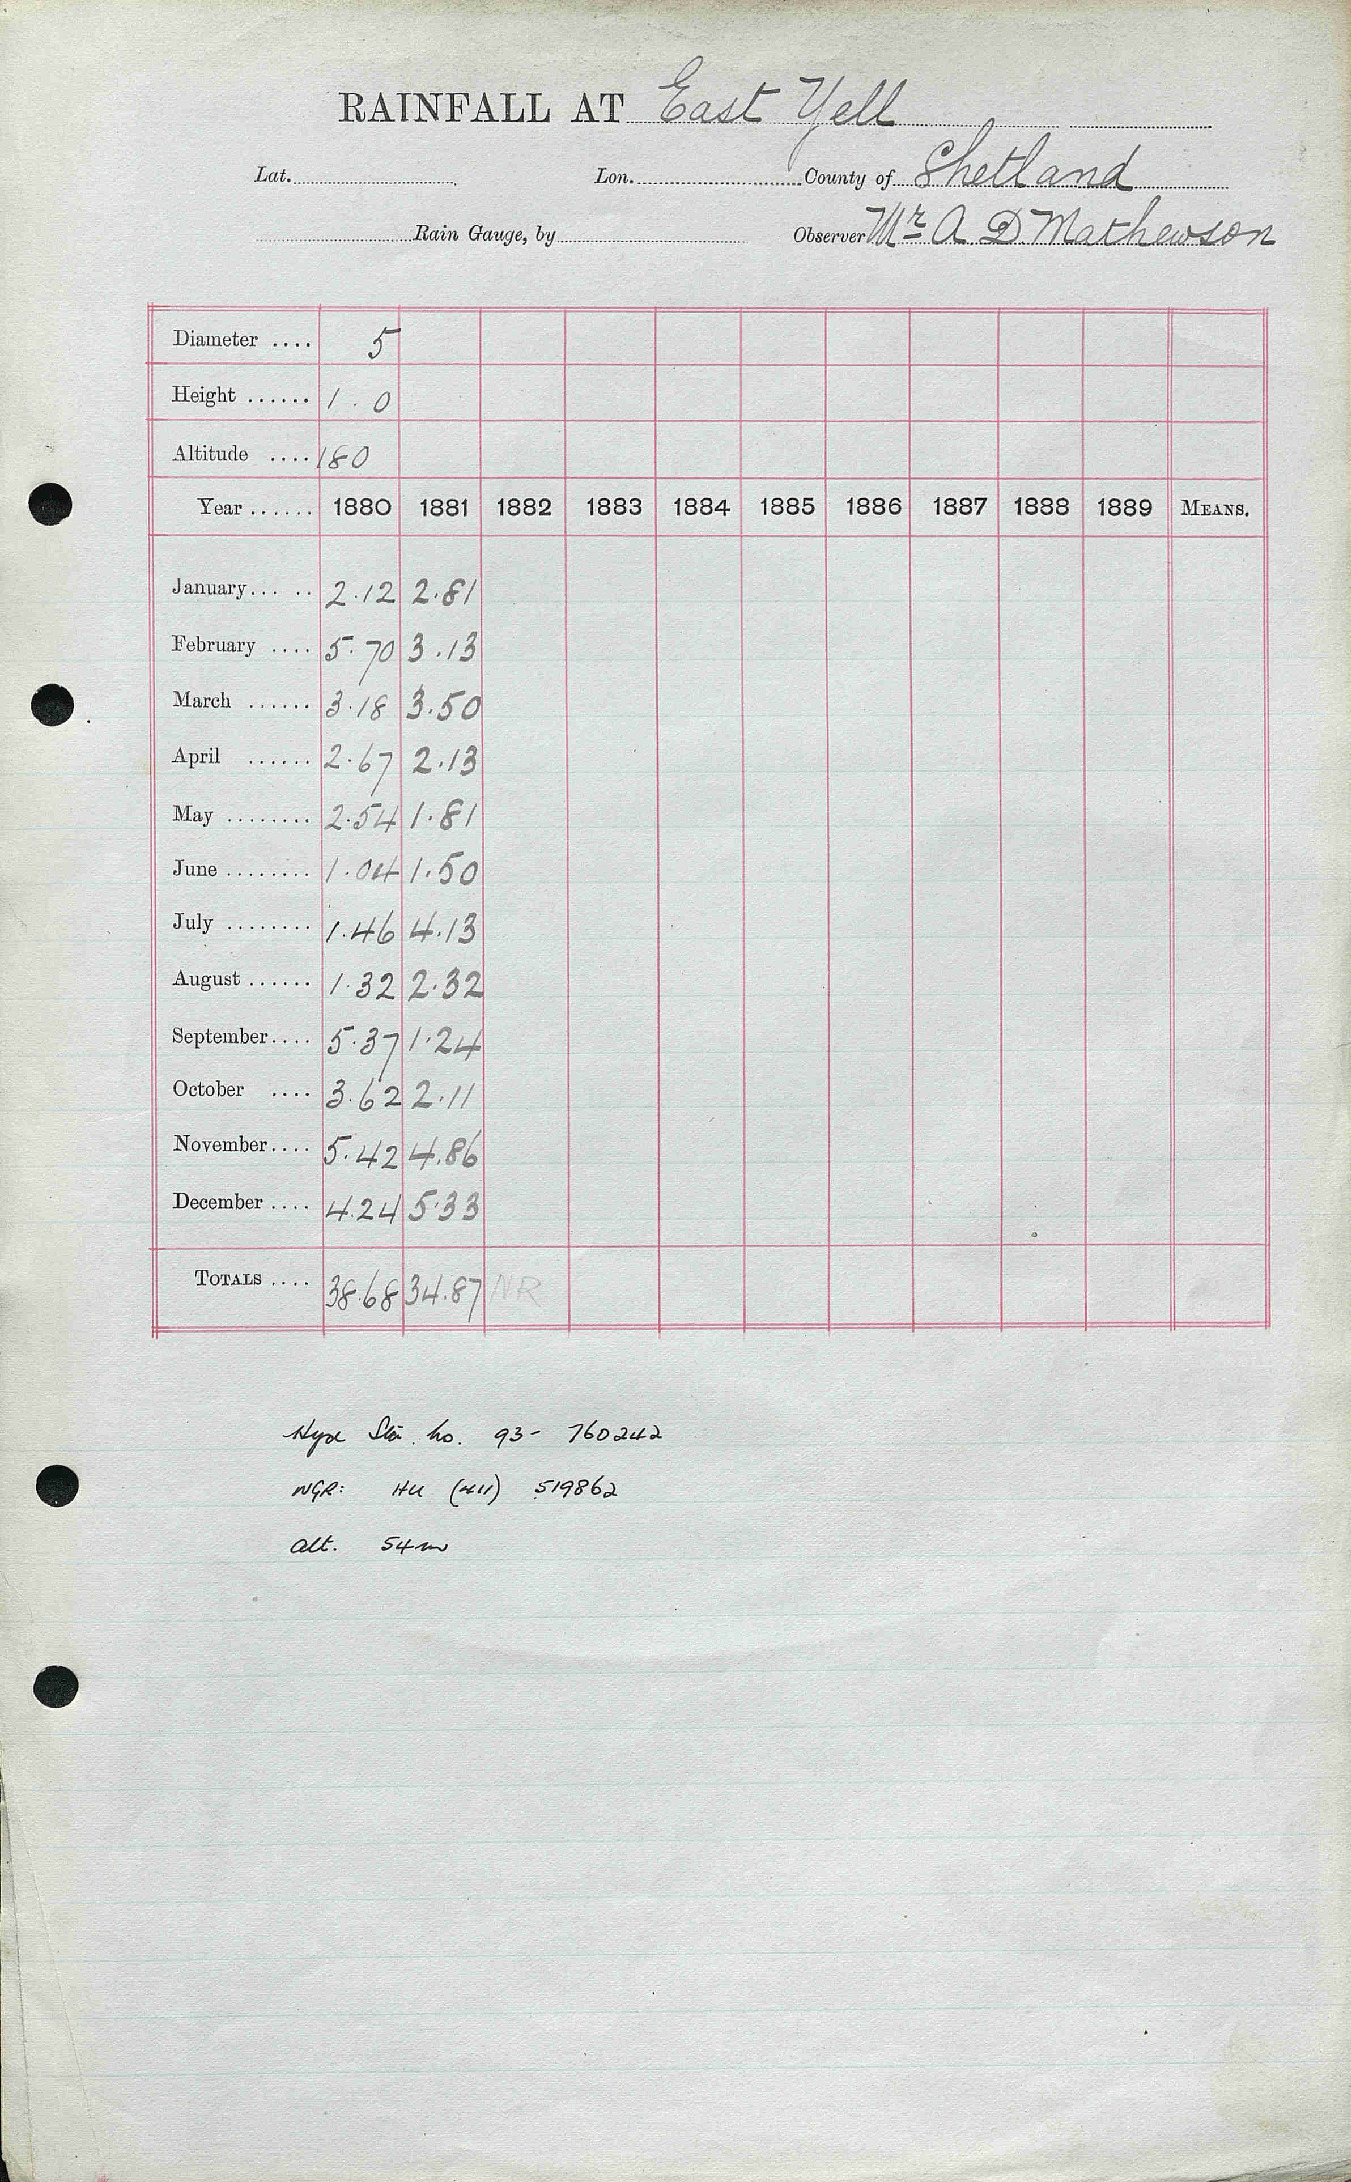 RAINFALL AT East Yell
Lat. Lon. County of Shetland
Rain Gauge, by Observer Mr A D Mathewson
Diameter .... 5
Height ...... 1.0
Altitude .... 180
Year ...... 1880 1881 1882 1883 1884 1885 1886 1887 1888 1889 MEANS.
January... .. 2.12 2.81
February .... 5.70 3.13
March ...... 3.18 3.50
April ...... 2.67 2.13
May ........ 2.54 1.81
June ........ 1.04 1.50
July ........ 1.46 4.13
August ...... 1.32 2.32
September.... 5.37 1.24
October .... 3.62 2.11
November.... 5.42 4.86
December .... 4.24 5.33
TOTALS .... 38.68 34.87 NR
Stn. no. 93- 760242
NGR: HU (411) 519862
Alt. 54m